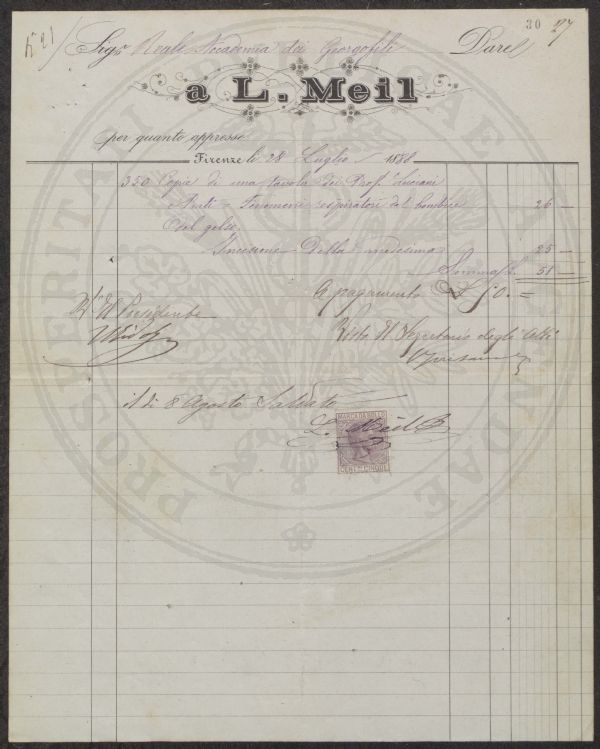 30 27
N° 21
Sigr Reale Accademia dei Georgofili Dare
a L. Meil
per quanto appresso
Firenze li 28 Luglio 1888
350 Copie di una tavola del Prof. Luciani
Fenomeni respiratori del bombice 26 —
del gelso
Incisione della medesima 25 —
Somma £. 51 —
A pagamento £ 50. =
Vto Il Presidente
Visto Il Segretario degli Atti
il dì 8 Agosto Saldato
L. Meil
MARCA DA BOLLO
CENT. CINQUE
PROSPERITATI PUBLICAE AUGENDAE